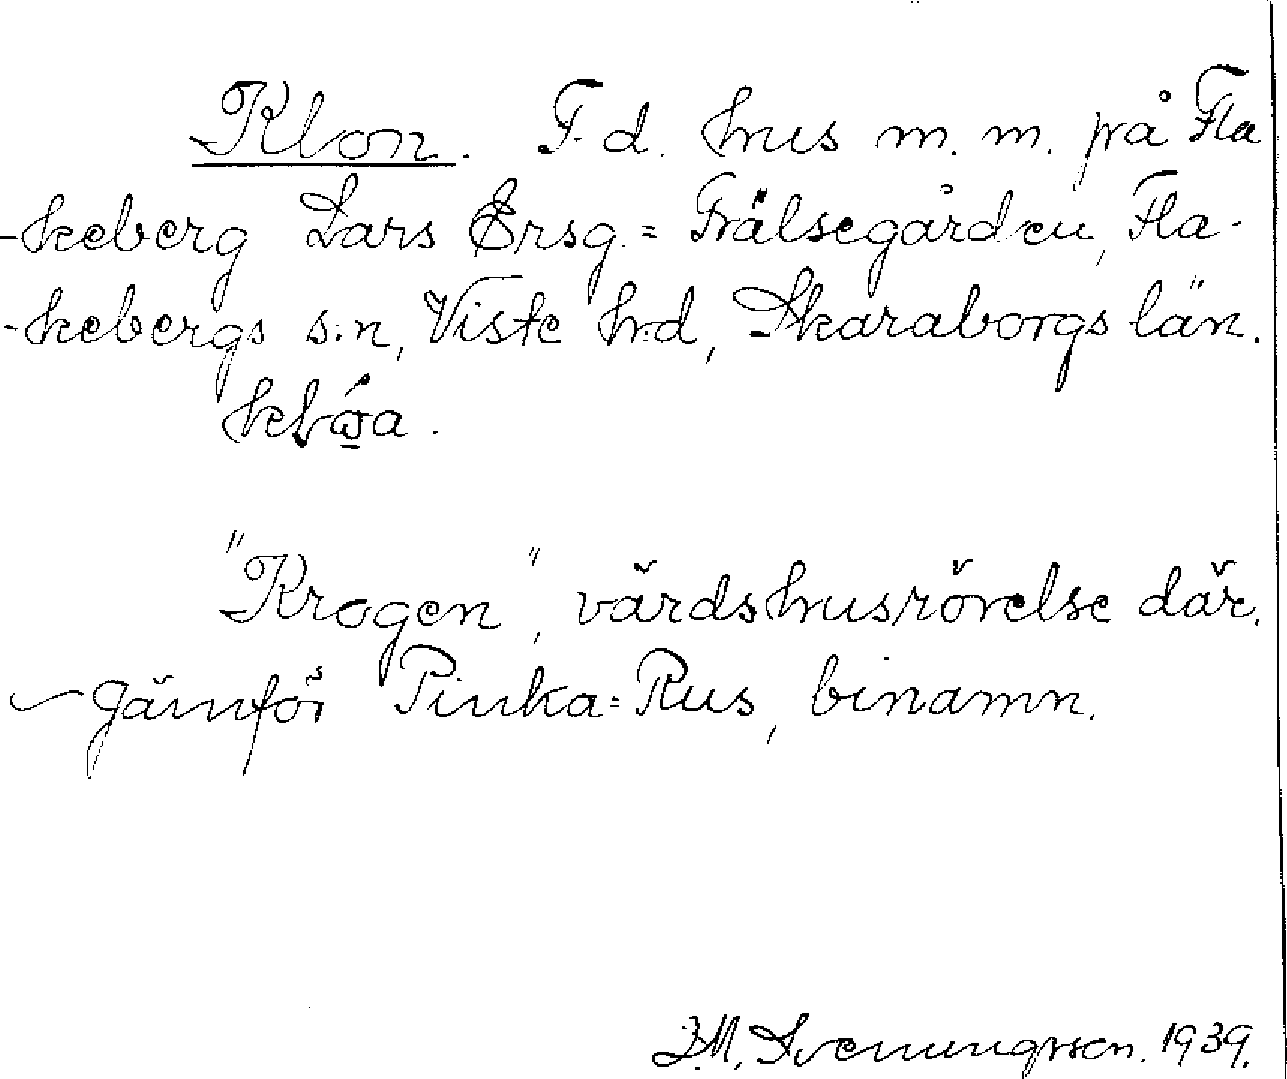 Klon. F. d. hus m. m. på Fla
-keberg Lars Ersg. = Frälsegården, Fla-
-kebergs s:n, Viste h:d, Skaraborgs län.
"Krogen", värdshusrörelse där.
Jämför Pinka-Rus, binamn.
D.M. Svenungsson. 1939.